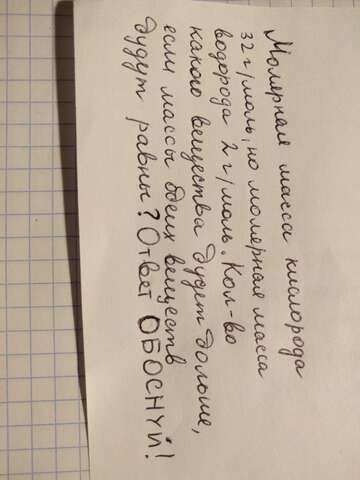 Молярная масса кислорода
32 г/моль, но молярная масса
водорода 2 г/моль. Кол-во
какого вещества будет больше,
если массы обеих веществ
будут равны? Ответ ОБОСНУЙ!